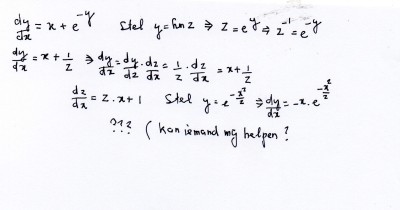 dy/dx = x + e^-y   Stel y = ln z ⇒ z = e^y ⇒ z^-1 = e^-y
dy/dx = x + 1/z ⇒ dy/dx = dy/dz · dz/dx = 1/z · dz/dx = x + 1/z
dz/dx = z · x + 1   Stel y = e^(-x²/2) ⇒ dy/dx = -x · e^(-x²/2)
??? ( Kan iemand mij helpen ?